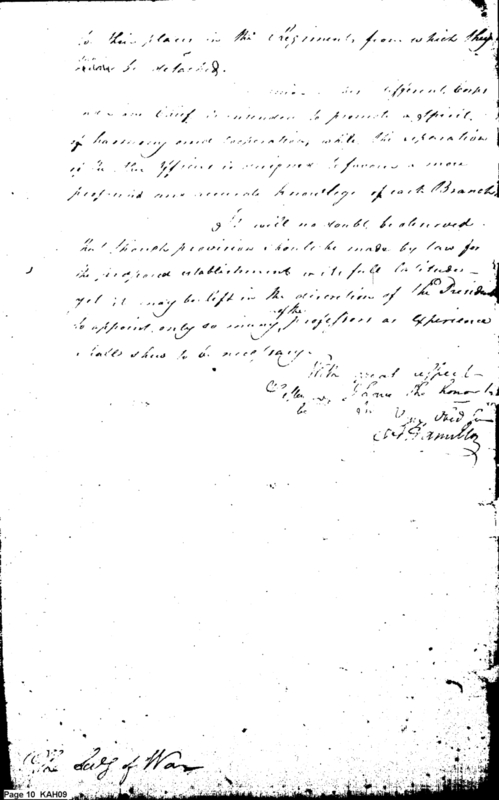 to their places in the Regiments from which they
be detached.
different
Chief is intended to promote a spirit
of harmony and cooperation, while the separation
is designed to favour a more
profound and accurate knowledge of each Branch
It will no doubt be observed
that though provision should be made by law for
the proposed establishment in its full latitude
yet it may be left in the discretion of the President
to appoint only so many of the professors as experience
shall shew to be necessary.
With great respect
I have the honor to
be
A. Hamilton
The Secy of War
Page 10 KAH09